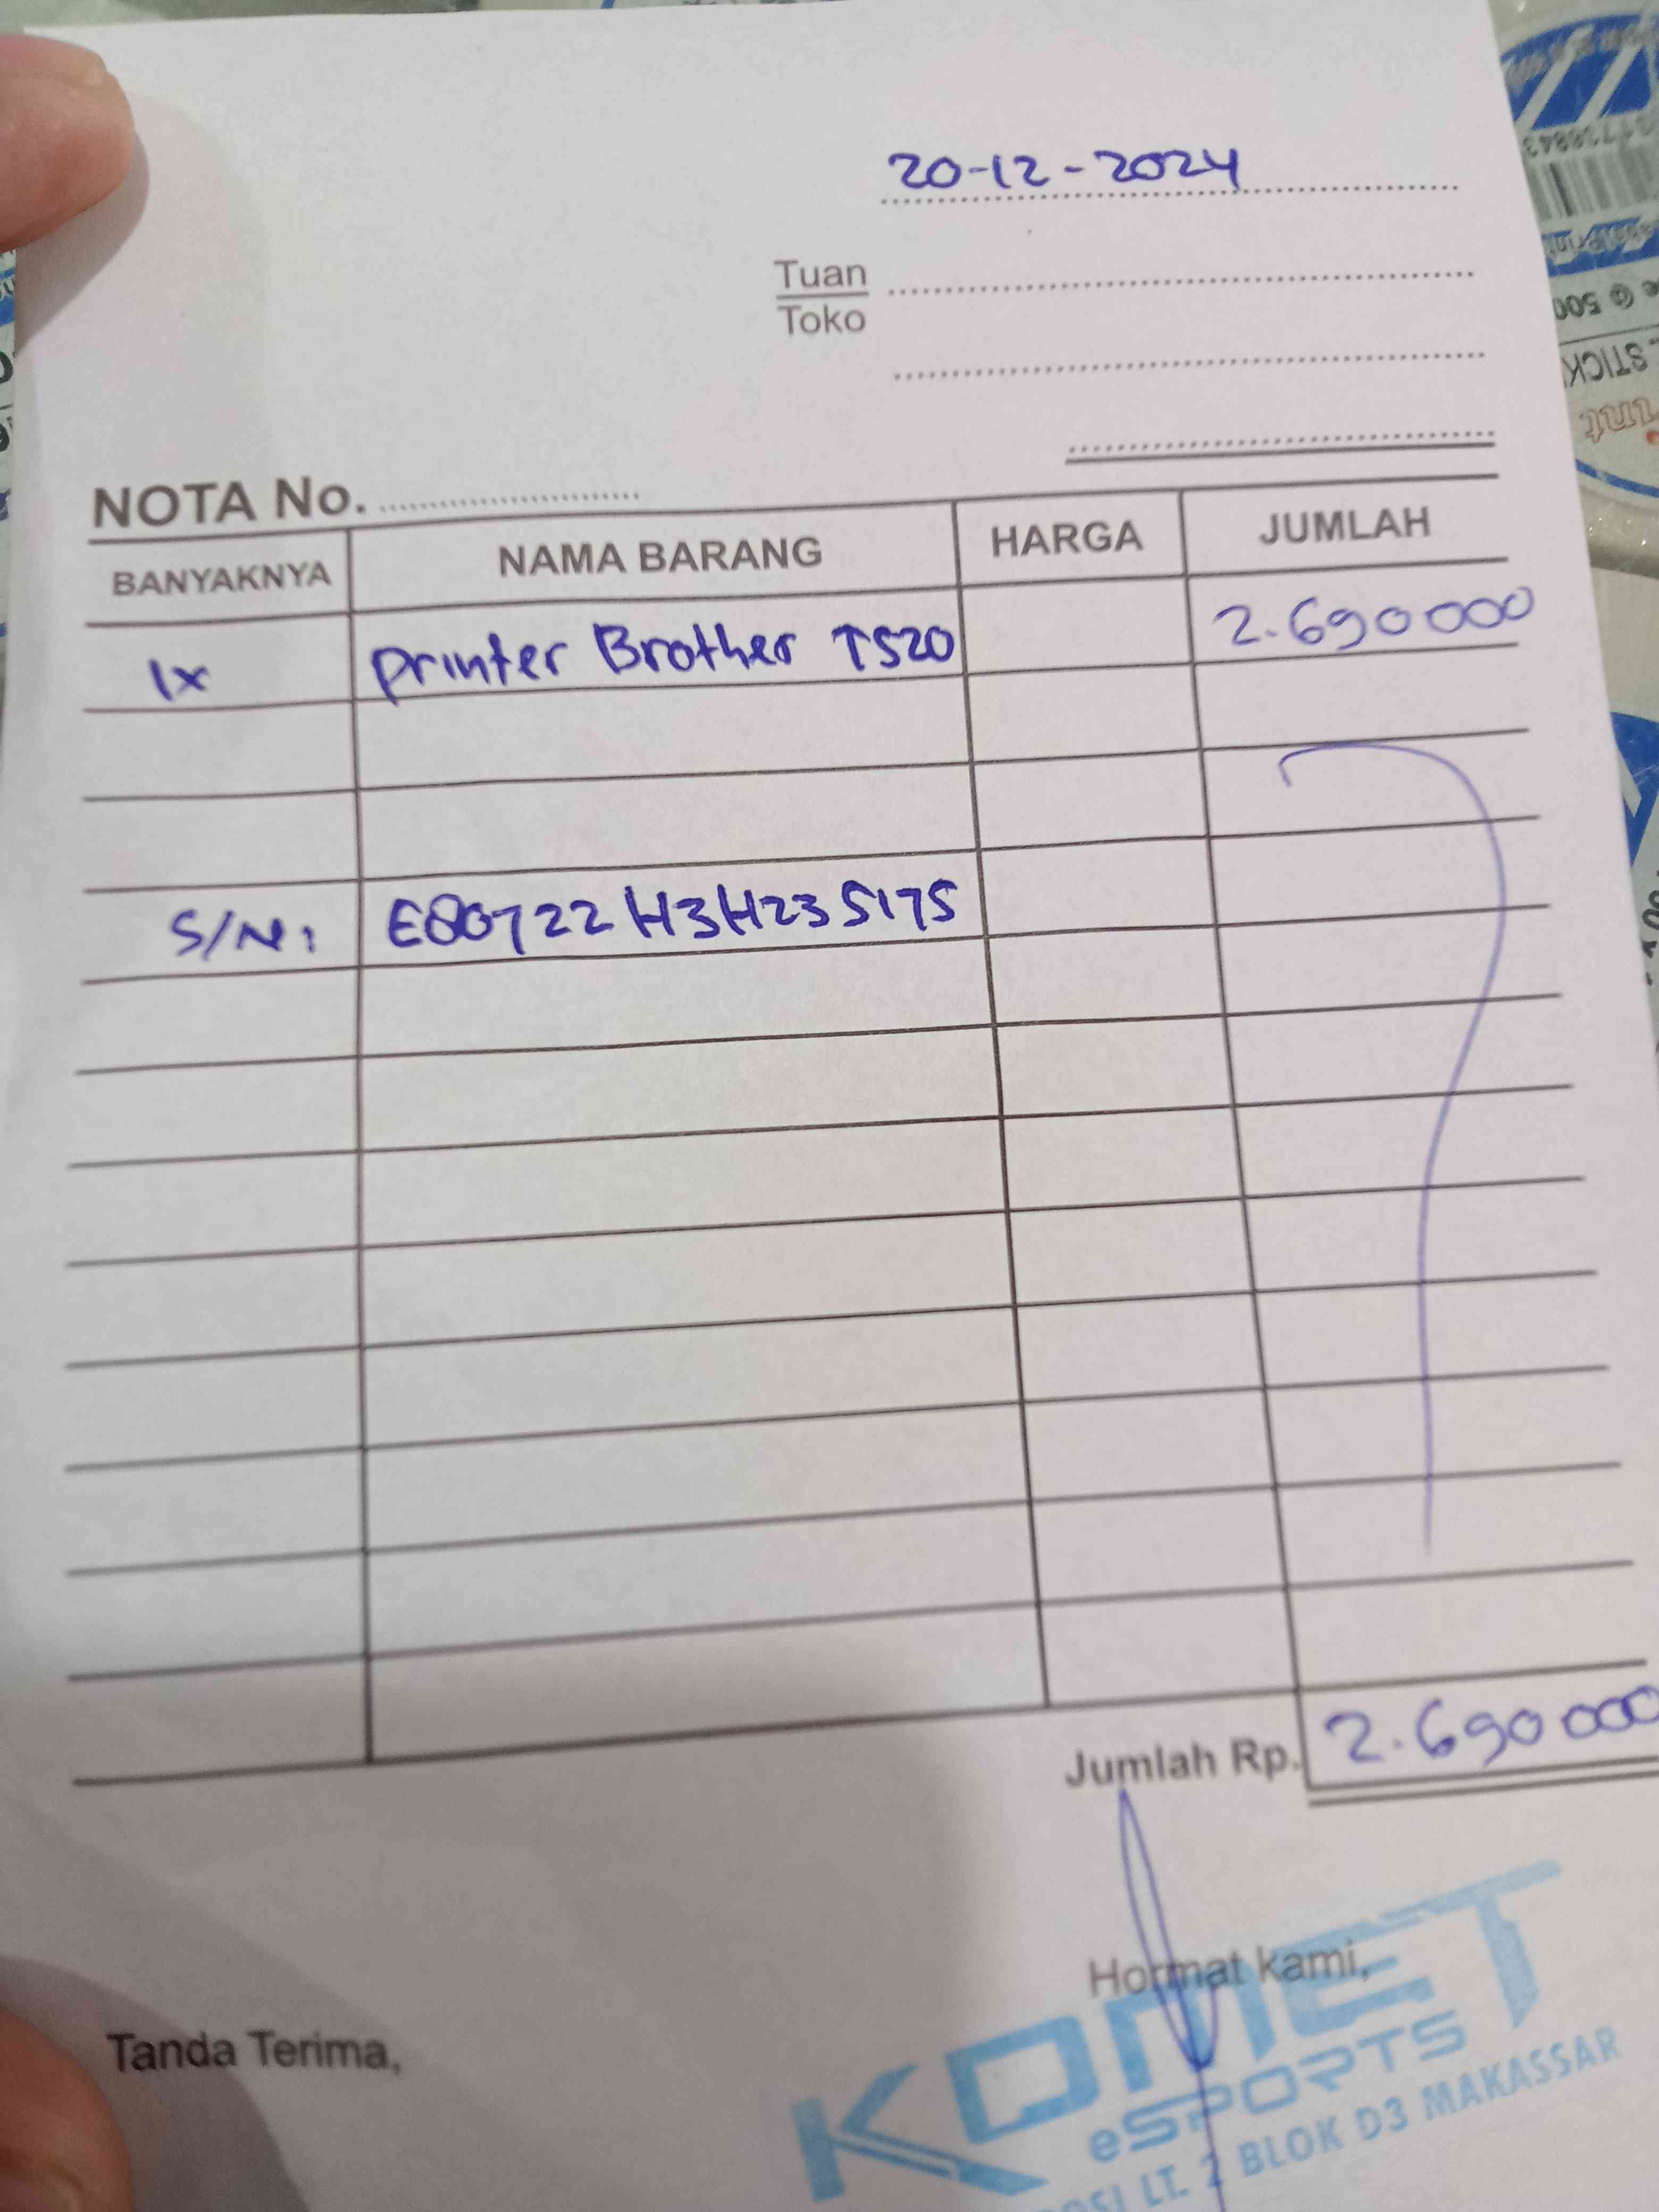 20-12-2024
Tuan
Toko
NOTA No.
BANYAKNYA NAMA BARANG HARGA JUMLAH
1x Printer Brother T520 2.690000
S/N: E80722H3H235175
Jumlah Rp. 2.690000
Hormat kami,
Tanda Terima,
KOMET
eSPORTS
LT. 2 BLOK D3 MAKASSAR